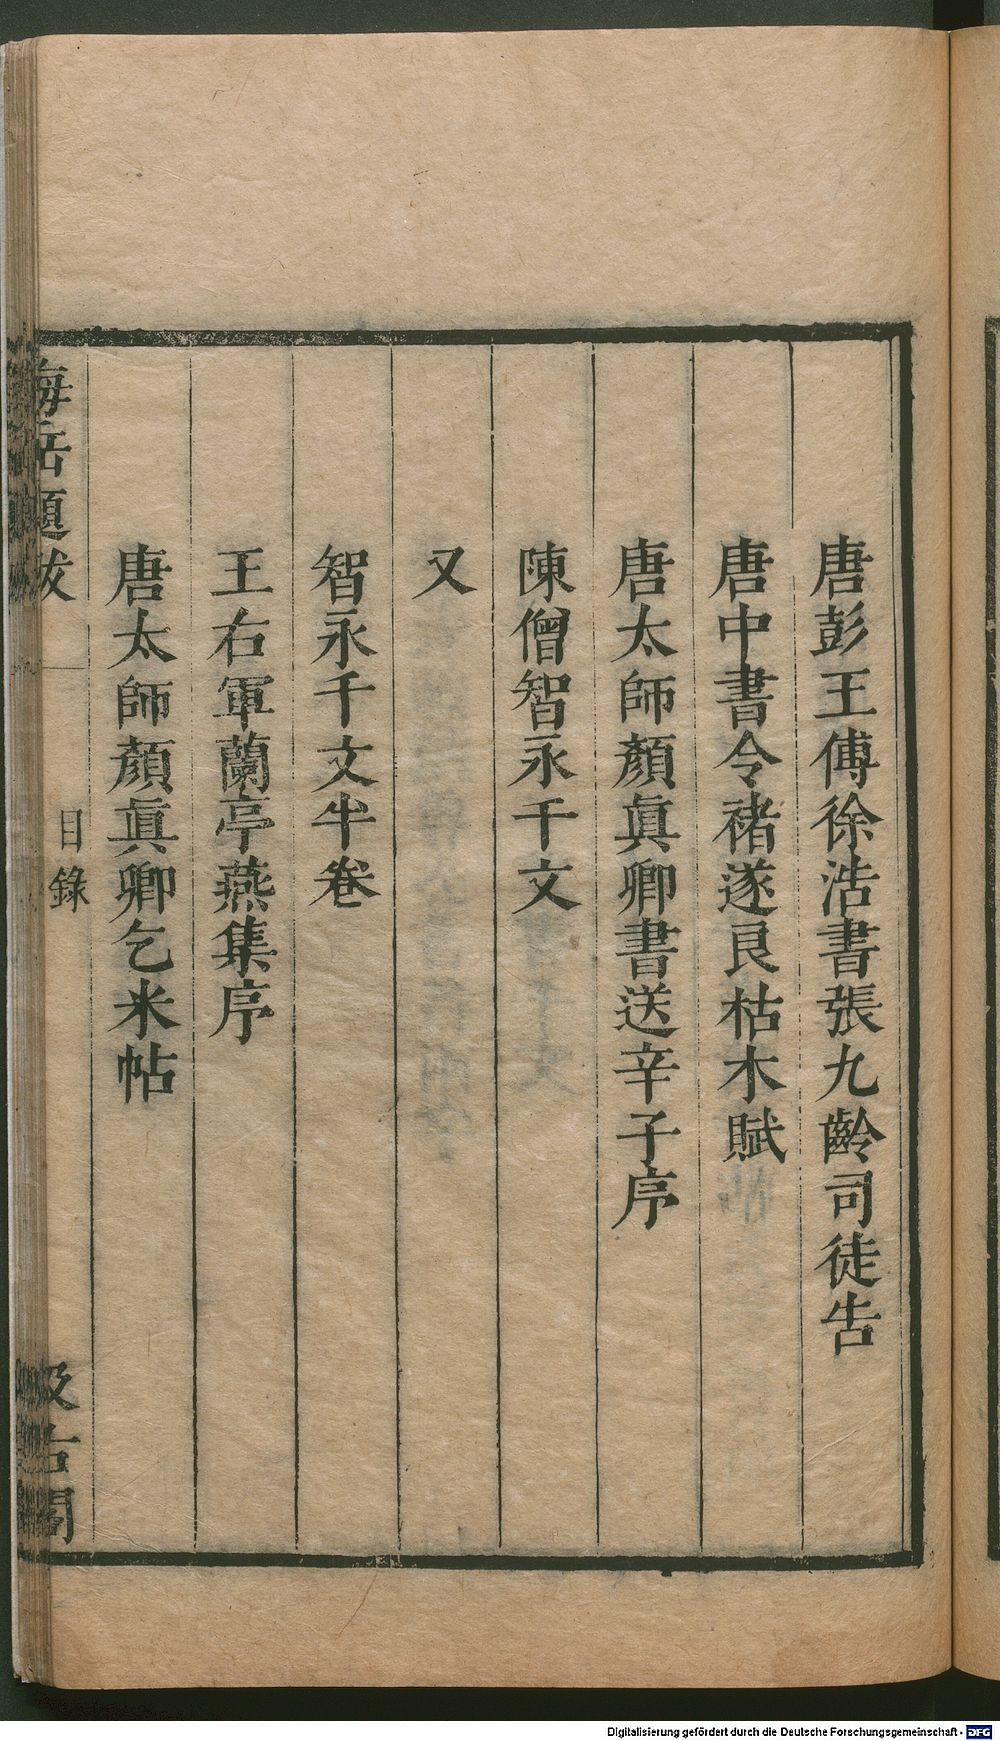 唐彭王傅徐浩書張九齡司徒告
唐中書令褚遂良枯木賦
唐太師顏眞卿書送辛子序
陳僧智永千文
又
智永千文半卷
王右軍蘭亭燕集序
唐太師顏眞卿乞米帖
海岳題跋
目錄
汲古閣
Digitalisierung gefördert durch die Deutsche Forschungsgemeinschaft - DFG